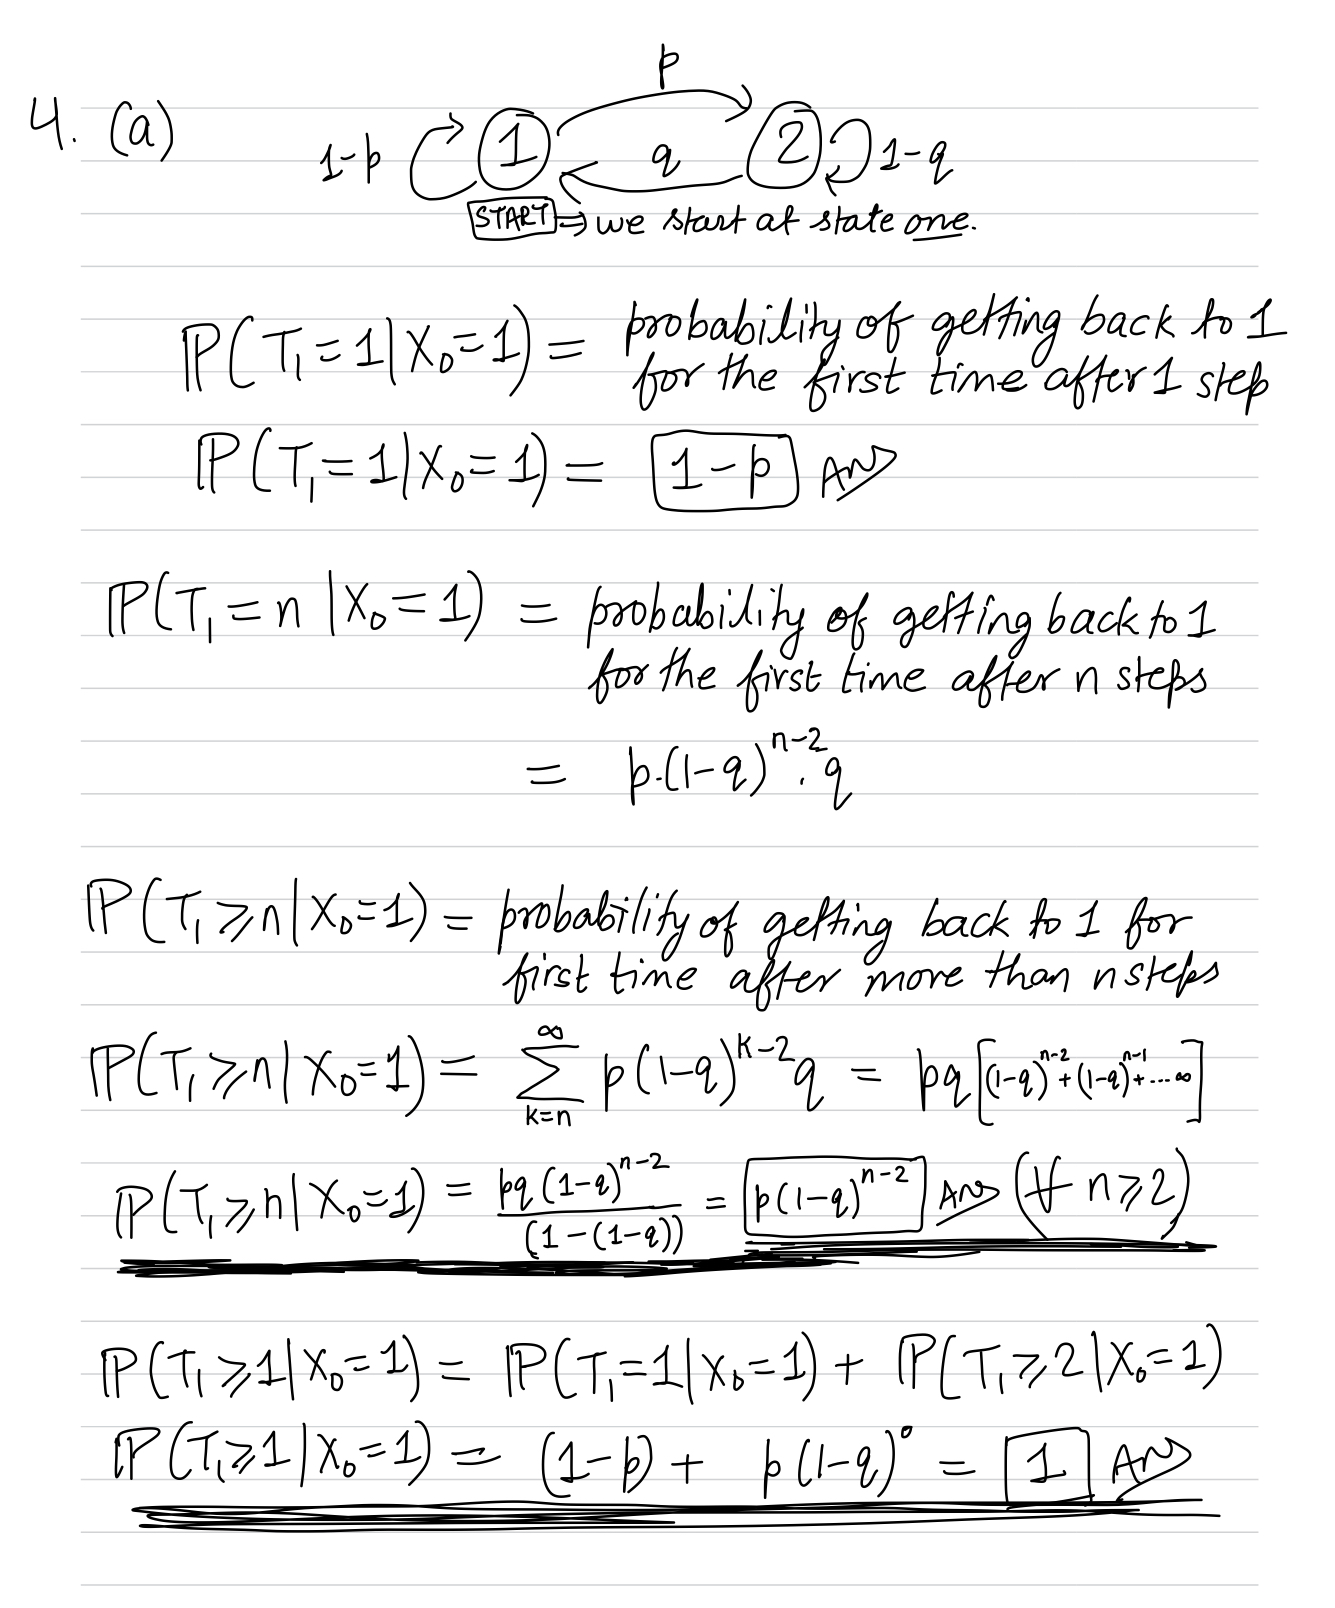 4. (a)
p
1-p 1 q 2 1-q
START ⇒ we start at state one.
P(T₁=1|X₀=1) = probability of getting back to 1
for the first time after 1 step
P(T₁=1|X₀=1) = 1-p Ans
P(T₁=n|X₀=1) = probability of getting back to 1
for the first time after n steps
= p.(1-q)ⁿ⁻².q
P(T₁⩾n|X₀=1) = probability of getting back to 1 for
first time after more than n steps
P(T₁⩾n|X₀=1) = ∑_{k=n}^{∞} p(1-q)^{k-2}q = pq[(1-q)^{n-2}+(1-q)^{n-1}+....∞]
P(T₁⩾n|X₀=1) = pq(1-q)^{n-2}/(1-(1-q)) = p(1-q)^{n-2} Ans (∀ n⩾2)
P(T₁⩾1|X₀=1) = P(T₁=1|X₀=1) + P(T₁⩾2|X₀=1)
P(T₁⩾1|X₀=1) = (1-p) + p(1-q)⁰ = 1 Ans